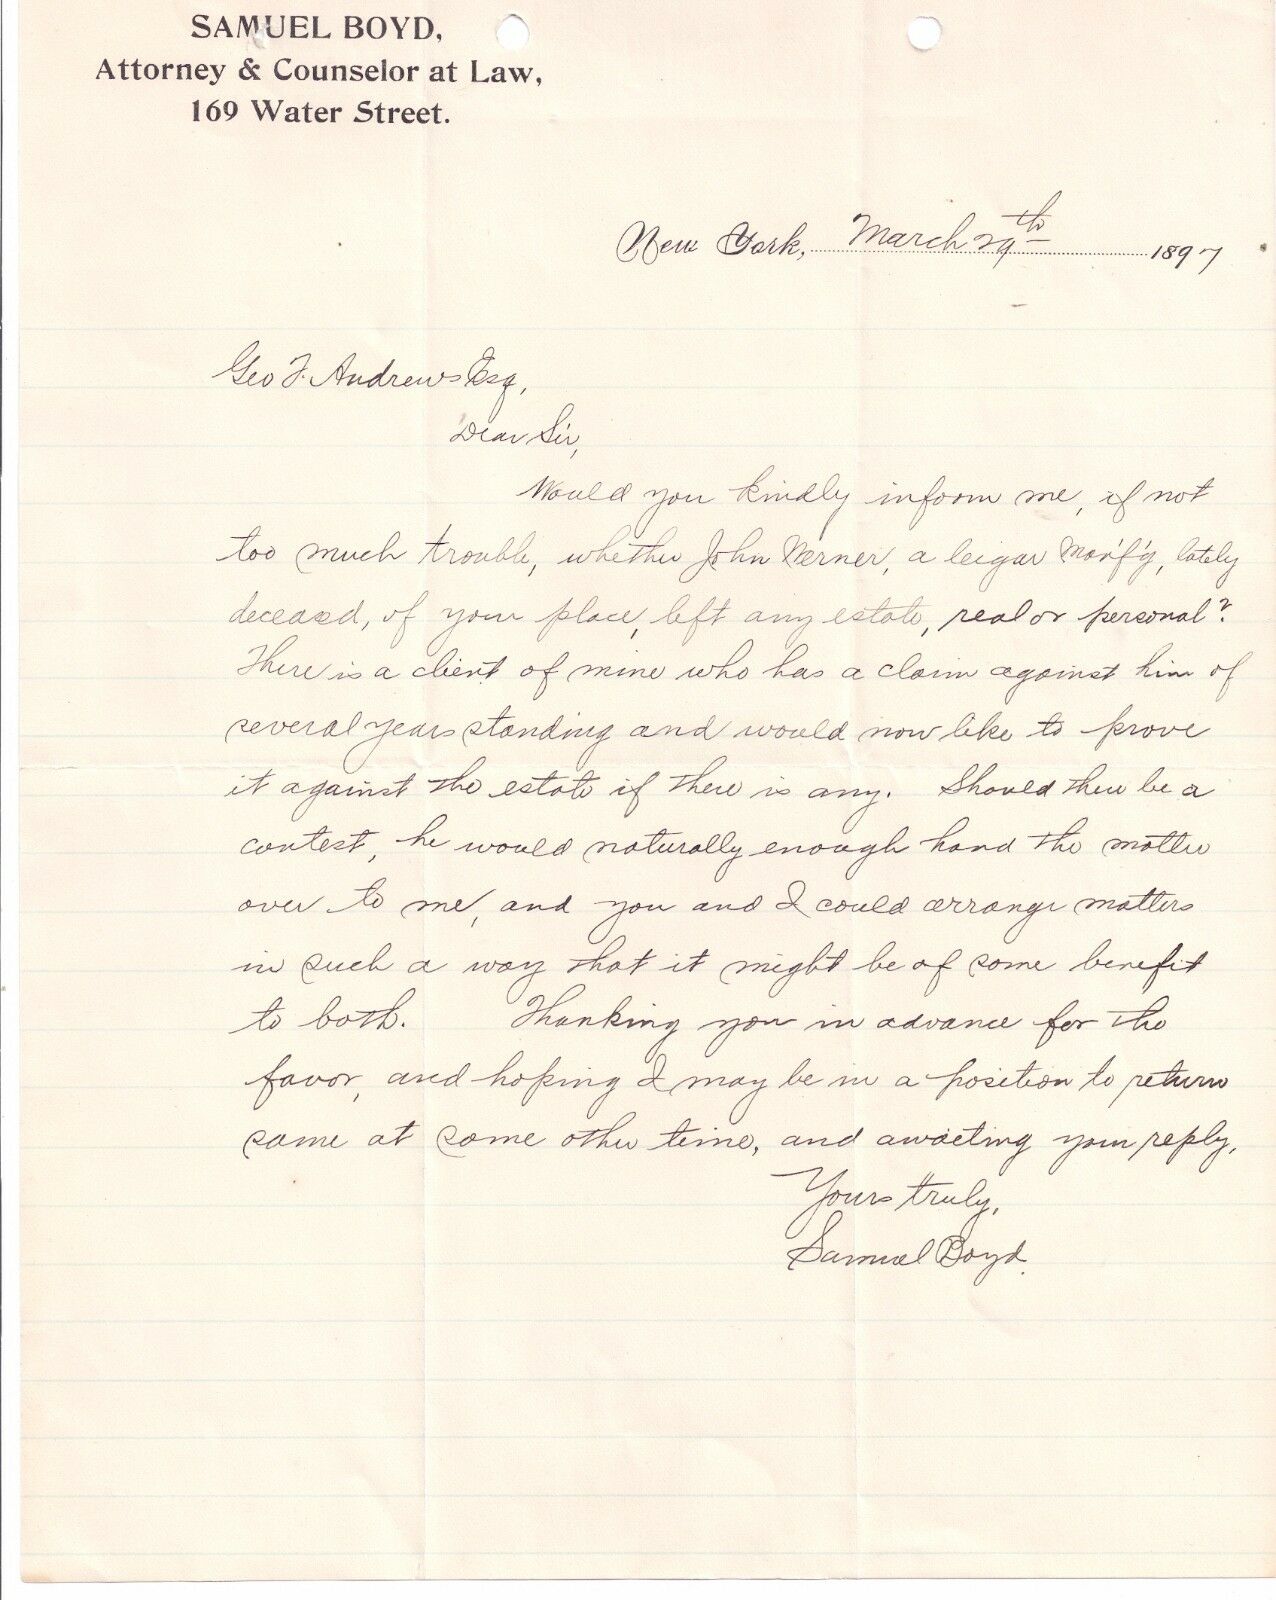 SAMUEL BOYD,
Attorney & Counselor at Law,
169 Water Street.
New York, March 29th 1897
Geo F. Andrews Esq,
Dear Sir,
Would you kindly inform me, if not
too much trouble, whether John Werner, a leigar Man'f'g, lately
deceased, of your place, left any estate, real or personal?
There is a client of mine who has a claim against him of
several years standing and would now like to prove
it against the estate if there is any. Should there be a
contest, he would naturally enough hand the matter
over to me, and you and I could arrange matters
in such a way that it might be of some benefit
to both. Thanking you in advance for the
favor, and hoping I may be in a position to return
same at some other time, and awaiting your reply,
Yours truly,
Samuel Boyd.